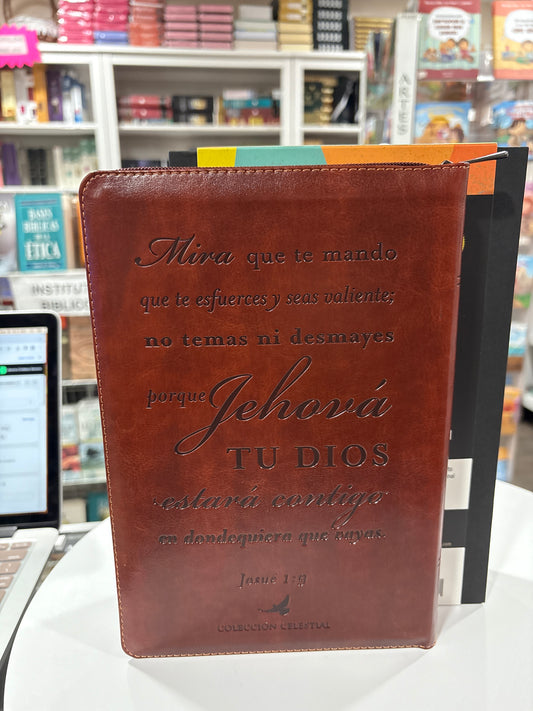 ARTES
BASES
BÍBLICAS
ÉTICA
INSTITUT
BIBLICA
Mira que te mando
que te esfuerces y seas valiente;
no temas ni desmayes
porque Jehová
TU DIOS
estará contigo
en dondequiera que vayas.
Josue 1:9
COLECCIÓN CELESTIAL